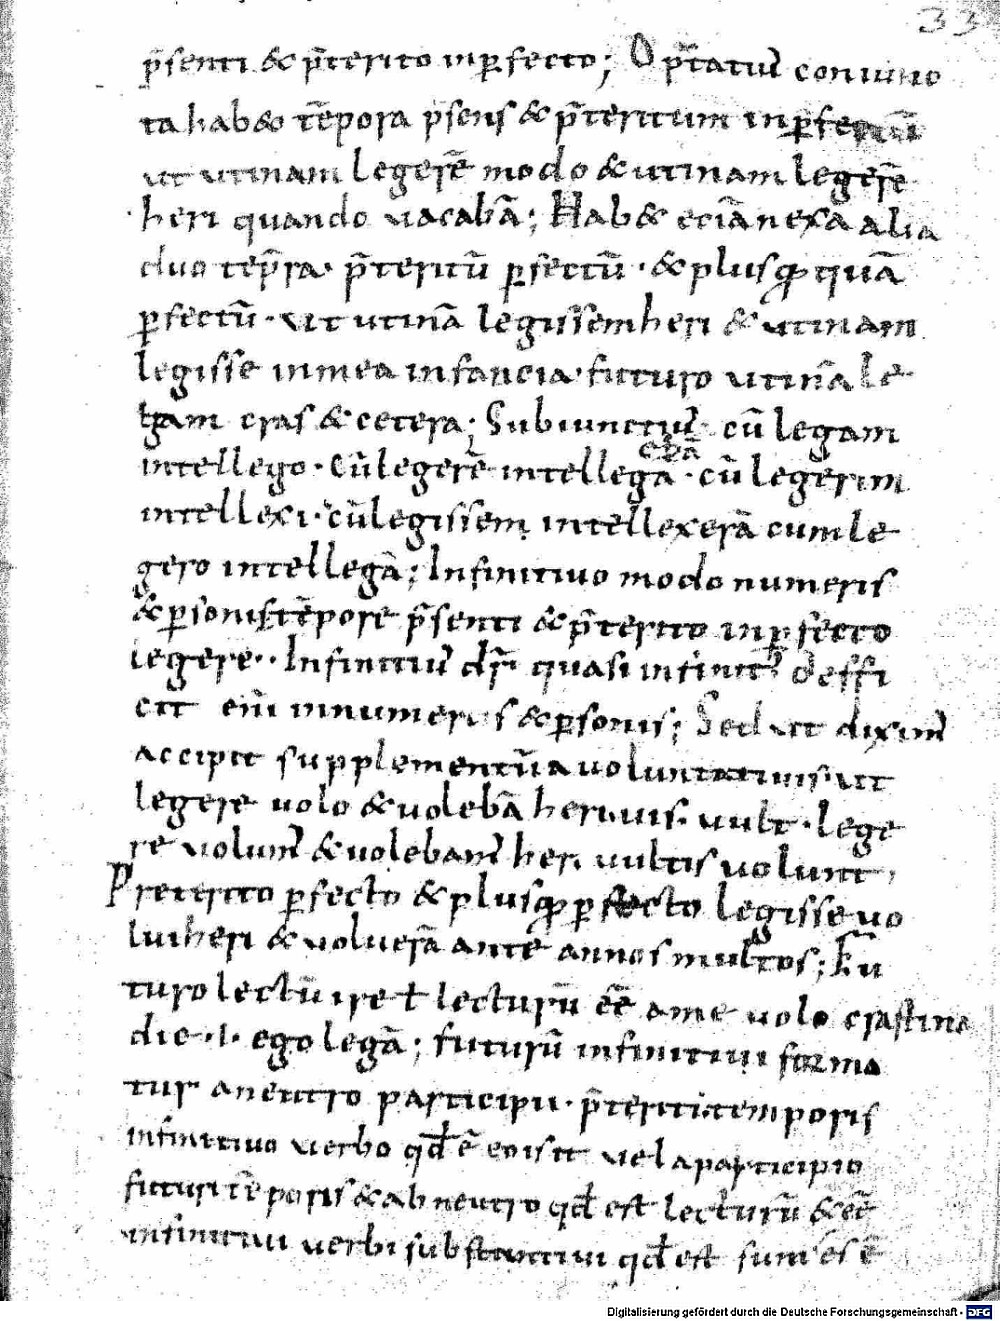 33
p̄senti & p̄terito inꝑfecto; Optatiuꝰ coniunc
ta hab& tēpora p̄sens & p̄teritum inꝑfectū
ut utinam legerē modo & utinam legerē
heri quando uacabā; Hab& eciā nexa alia
duo tēp̄ra· p̄teritū ꝑfectū · & plusꝙ quā
ꝑfectū · ut utinā legissem heri & utinam
legisse in mea infancia · futuro utinā le
gam cras & cetera; Subiunctiuꝰ cū legam
intellego · cū legerē intellegā · cū legerim
ebā
intellexi · cū legissem intellexerā cum le
gero intellegā; Infinitiuo modo numeris
& ꝑsonis tēpore p̄senti & p̄terito inꝑfecto
legere · · Infinitiuꝰ dr̄ quasi infinitꝰ deffi
cit eni in numeris & ꝑsonis; Sed ut diximꝰ
accipit supplementū a uoluntatiuis · ut
legere uolo & uolebā heri · uis · uult · lege
re uolumꝰ & uolebamꝰ heri uultis uolunt ;
Preterito ꝑfecto & plusꝙ ꝑfecto legisse uo
lui heri & uoluerā ante annos multos; Fu
turo lectū ire ƚ lecturū eē a me uolo crastina
die · i · ego legā; futurū infinitiui forma
tur a neutro participii · p̄teriti temporis
infinitiuo uerbo qđ ē eo is it uel a participio
futuri tēporis & ab neutro qđ est lecturū & eē
infinitiui uerbi substantiui qđ est sum es ē
Digitalisierung gefördert durch die Deutsche Forschungsgemeinschaft - DFG